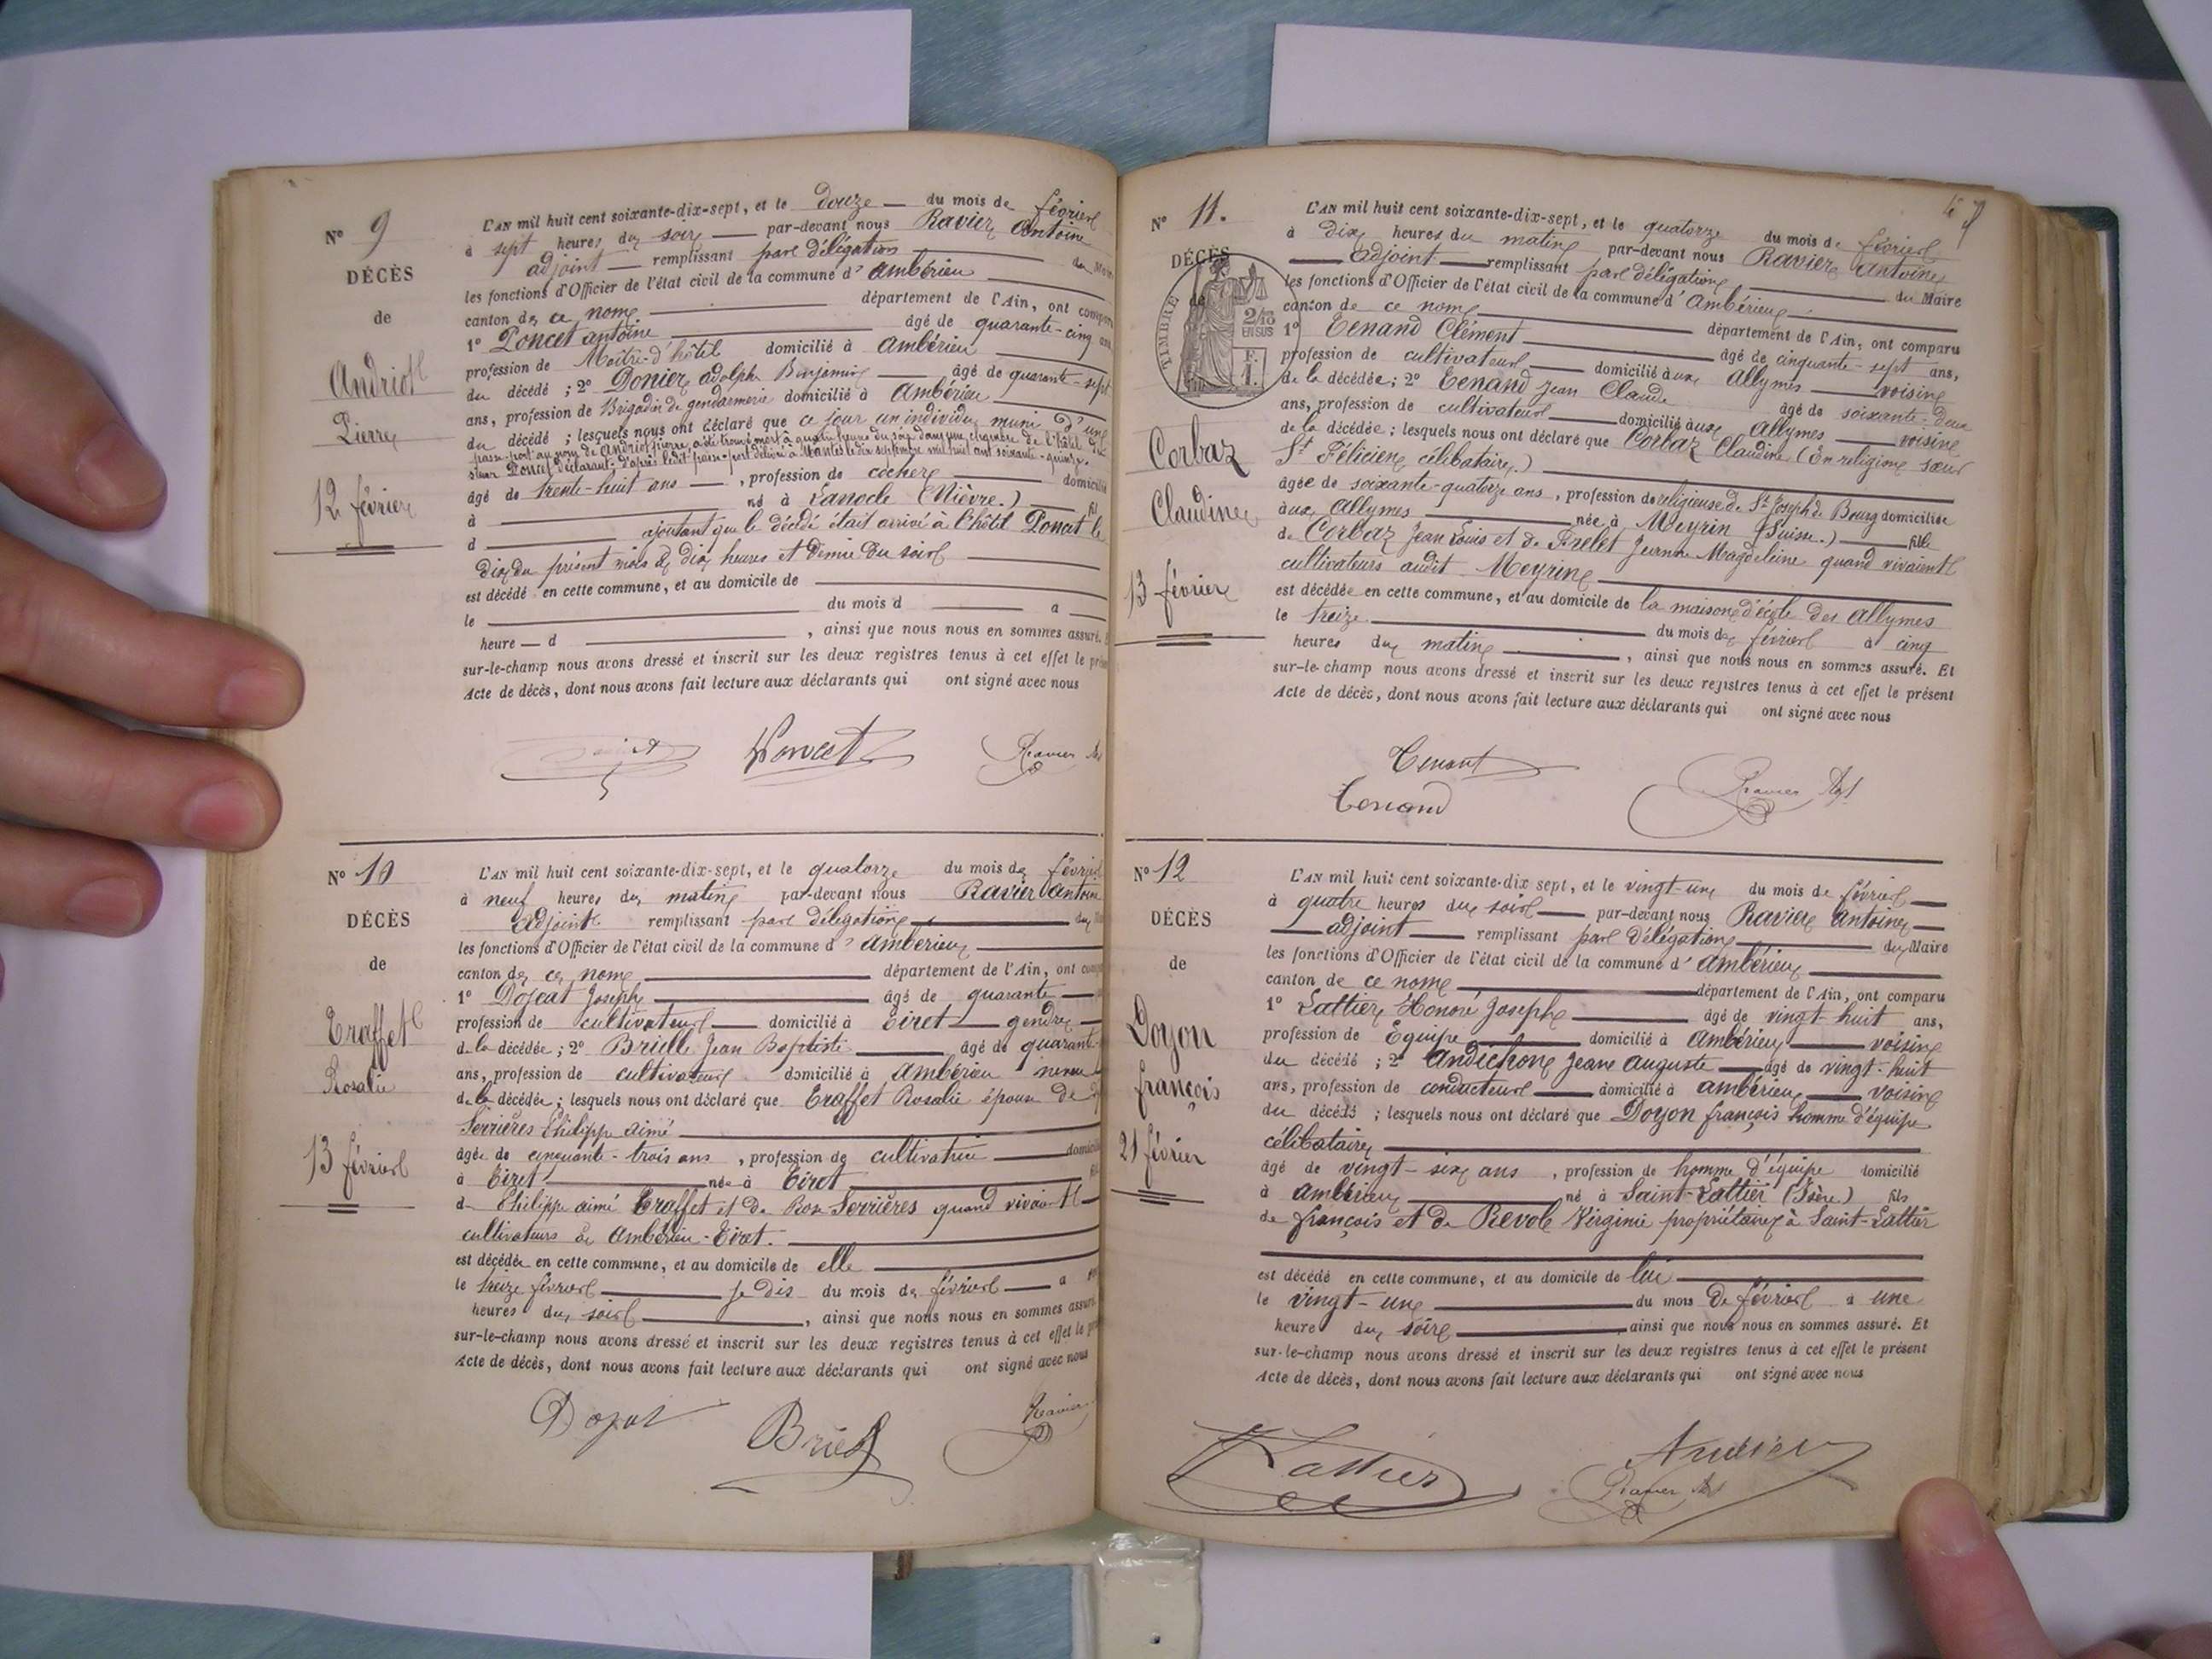 N° 9
DÉCÈS
de
Andriot
Pierre
12 février
L'AN mil huit cent soixante-dix-sept, et le douze du mois de février
à sept heures du soir par-devant nous Ravier Antoine
adjoint remplissant par délégation du Maire
les fonctions d'Officier de l'état civil de la commune d'Ambérieu
canton de ce nom département de l'Ain, ont comparu
1° Poncet antoine âgé de quarante-cinq ans
profession de Maître-d'hôtel domicilié à Ambérieu
du décédé ; 2° Donier adolphe Benjamin âgé de quarante-sept
ans, profession de Brigadier de gendarmerie domicilié à Ambérieu
du décédé ; lesquels nous ont déclaré que ce jour un individu muni d'un
passe-port au nom de Andriot pierre, a été trouvé mort à quatre heures du soir dans une chambre de l'hôtel du
sieur Poncet déclarant. d'après ledit passe-port délivré à Nantes le dix septembre mil huit cent soixante-quinze.
âgé de trente-huit ans , profession de cocher domicilié
à né à Lanocle (Nièvre.) fil
d ajoutant que le décédé était arrivé à l'hôtel Poncet le
dix du présent mois à dix heures et demie du soir
est décédé en cette commune, et au domicile de
le du mois d a
heure d , ainsi que nous nous en sommes assuré.
sur-le-champ nous avons dressé et inscrit sur les deux registres tenus à cet effet le
Acte de décès, dont nous avons fait lecture aux déclarants qui ont signé avec nous
Poncet Ravier
N° 10
DÉCÈS
de
Traffet
Rosalie
13 février
L'AN mil huit cent soixante-dix-sept, et le quatorze du mois de février
à neuf heures du matin par-devant nous Ravier Antoine
Adjoint remplissant par délégation du
les fonctions d'Officier de l'état civil de la commune d'Ambérieu
canton de ce nom département de l'Ain, ont
1° Dojeat Joseph âgé de quarante
profession de cultivateur domicilié à Tiret gendre
de la décédée ; 2° Brielle Jean Baptiste âgé de quarante
ans, profession de cultivateur domicilié à Ambérieu neveu
de la décédée ; lesquels nous ont déclaré que Traffet Rosalie épouse de
Serrières Philippe aimé
âgée de cinquante-trois ans , profession de cultivatrice domicilié
à Tiret née à Tiret
de Philippe aimé Traffet et de Rose Serrières quand vivait
cultivateurs à Ambérieu-Tiret.
est décédée en cette commune, et au domicile de elle
le treize février je dis du mois de février a
heures du soir , ainsi que nous nous en sommes assuré
sur-le-champ nous avons dressé et inscrit sur les deux registres tenus à cet effet le
Acte de décès, dont nous avons fait lecture aux déclarants qui ont signé avec nous
Ravier
N° 11.
DÉCÈS
de
TIMBRE
2/10
EN SUS
Corbaz
Claudine
13 février
L'AN mil huit cent soixante-dix-sept, et le quatorze du mois de février
à dix heures du matin par-devant nous Ravier Antoine
Adjoint remplissant par délégation du Maire
les fonctions d'Officier de l'état civil de la commune d'Ambérieu
canton de ce nom département de l'Ain, ont comparu
1° Tenand Clément âgé de cinquante-sept ans,
profession de cultivateur domicilié aux Allymes voisin
de la décédée ; 2° Tenand Jean Claude âgé de soixante-deux
ans, profession de cultivateur domicilié aux Allymes voisin
de la décédée ; lesquels nous ont déclaré que Corbaz Claudine (En religion sœur
St Félicien célibataire,)
âgée de soixante-quatorze ans , profession de religieuse de St Joseph de Bourg domiciliée
aux Allymes née à Meyrin (Suisse.) fille
de Corbaz Jean Louis et de Frelet Jeanne Magdeleine quand vivaient
cultivateurs audit Meyrin
est décédée en cette commune, et au domicile de la maison d'école des Allymes
le treize du mois de février à cinq
heures du matin , ainsi que nous nous en sommes assuré. Et
sur-le-champ nous avons dressé et inscrit sur les deux registres tenus à cet effet le présent
Acte de décès, dont nous avons fait lecture aux déclarants qui ont signé avec nous
Tenant
Tenand Ravier Adj
N° 12
DÉCÈS
de
Doyon
françois
21 février
L'AN mil huit cent soixante-dix sept, et le vingt-un du mois de février
à quatre heures du soir par-devant nous Ravier Antoine
adjoint remplissant par délégation du Maire
les fonctions d'Officier de l'état civil de la commune d'Ambérieu
canton de ce nom département de l'Ain, ont comparu
1° Lattier Honoré Joseph âgé de vingt-huit ans,
profession de Equipe domicilié à Ambérieu voisin
du décédé ; 2° Andichon Jean Auguste âgé de vingt-huit
ans, profession de conducteur domicilié à ambérieu voisin
du décédé ; lesquels nous ont déclaré que Doyon françois homme d'équipe
célibataire
âgé de vingt-six ans , profession de homme d'équipe domicilié
à Ambérieu né à Saint-Lattier (Isère) fils
de françois et de Revole Virginie propriétaires à Saint-Lattier
est décédé en cette commune, et au domicile de lui
le vingt-un du mois De février a une
heure du soir ainsi que nous nous en sommes assuré. Et
sur-le-champ nous avons dressé et inscrit sur les deux registres tenus à cet effet le présent
Acte de décès, dont nous avons fait lecture aux déclarants qui ont signé avec nous
Lattier
Ravier Adj